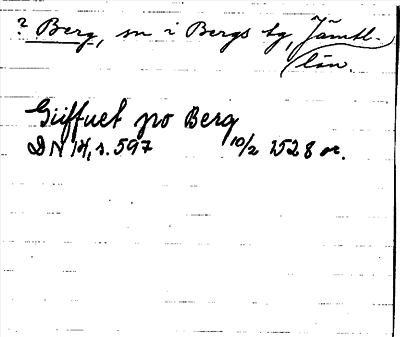 ? Berg, sn i Bergs tg, Jämtl-
län.
Giiffuet pro Berg
DN 14, s. 597 10/2 1528 or.